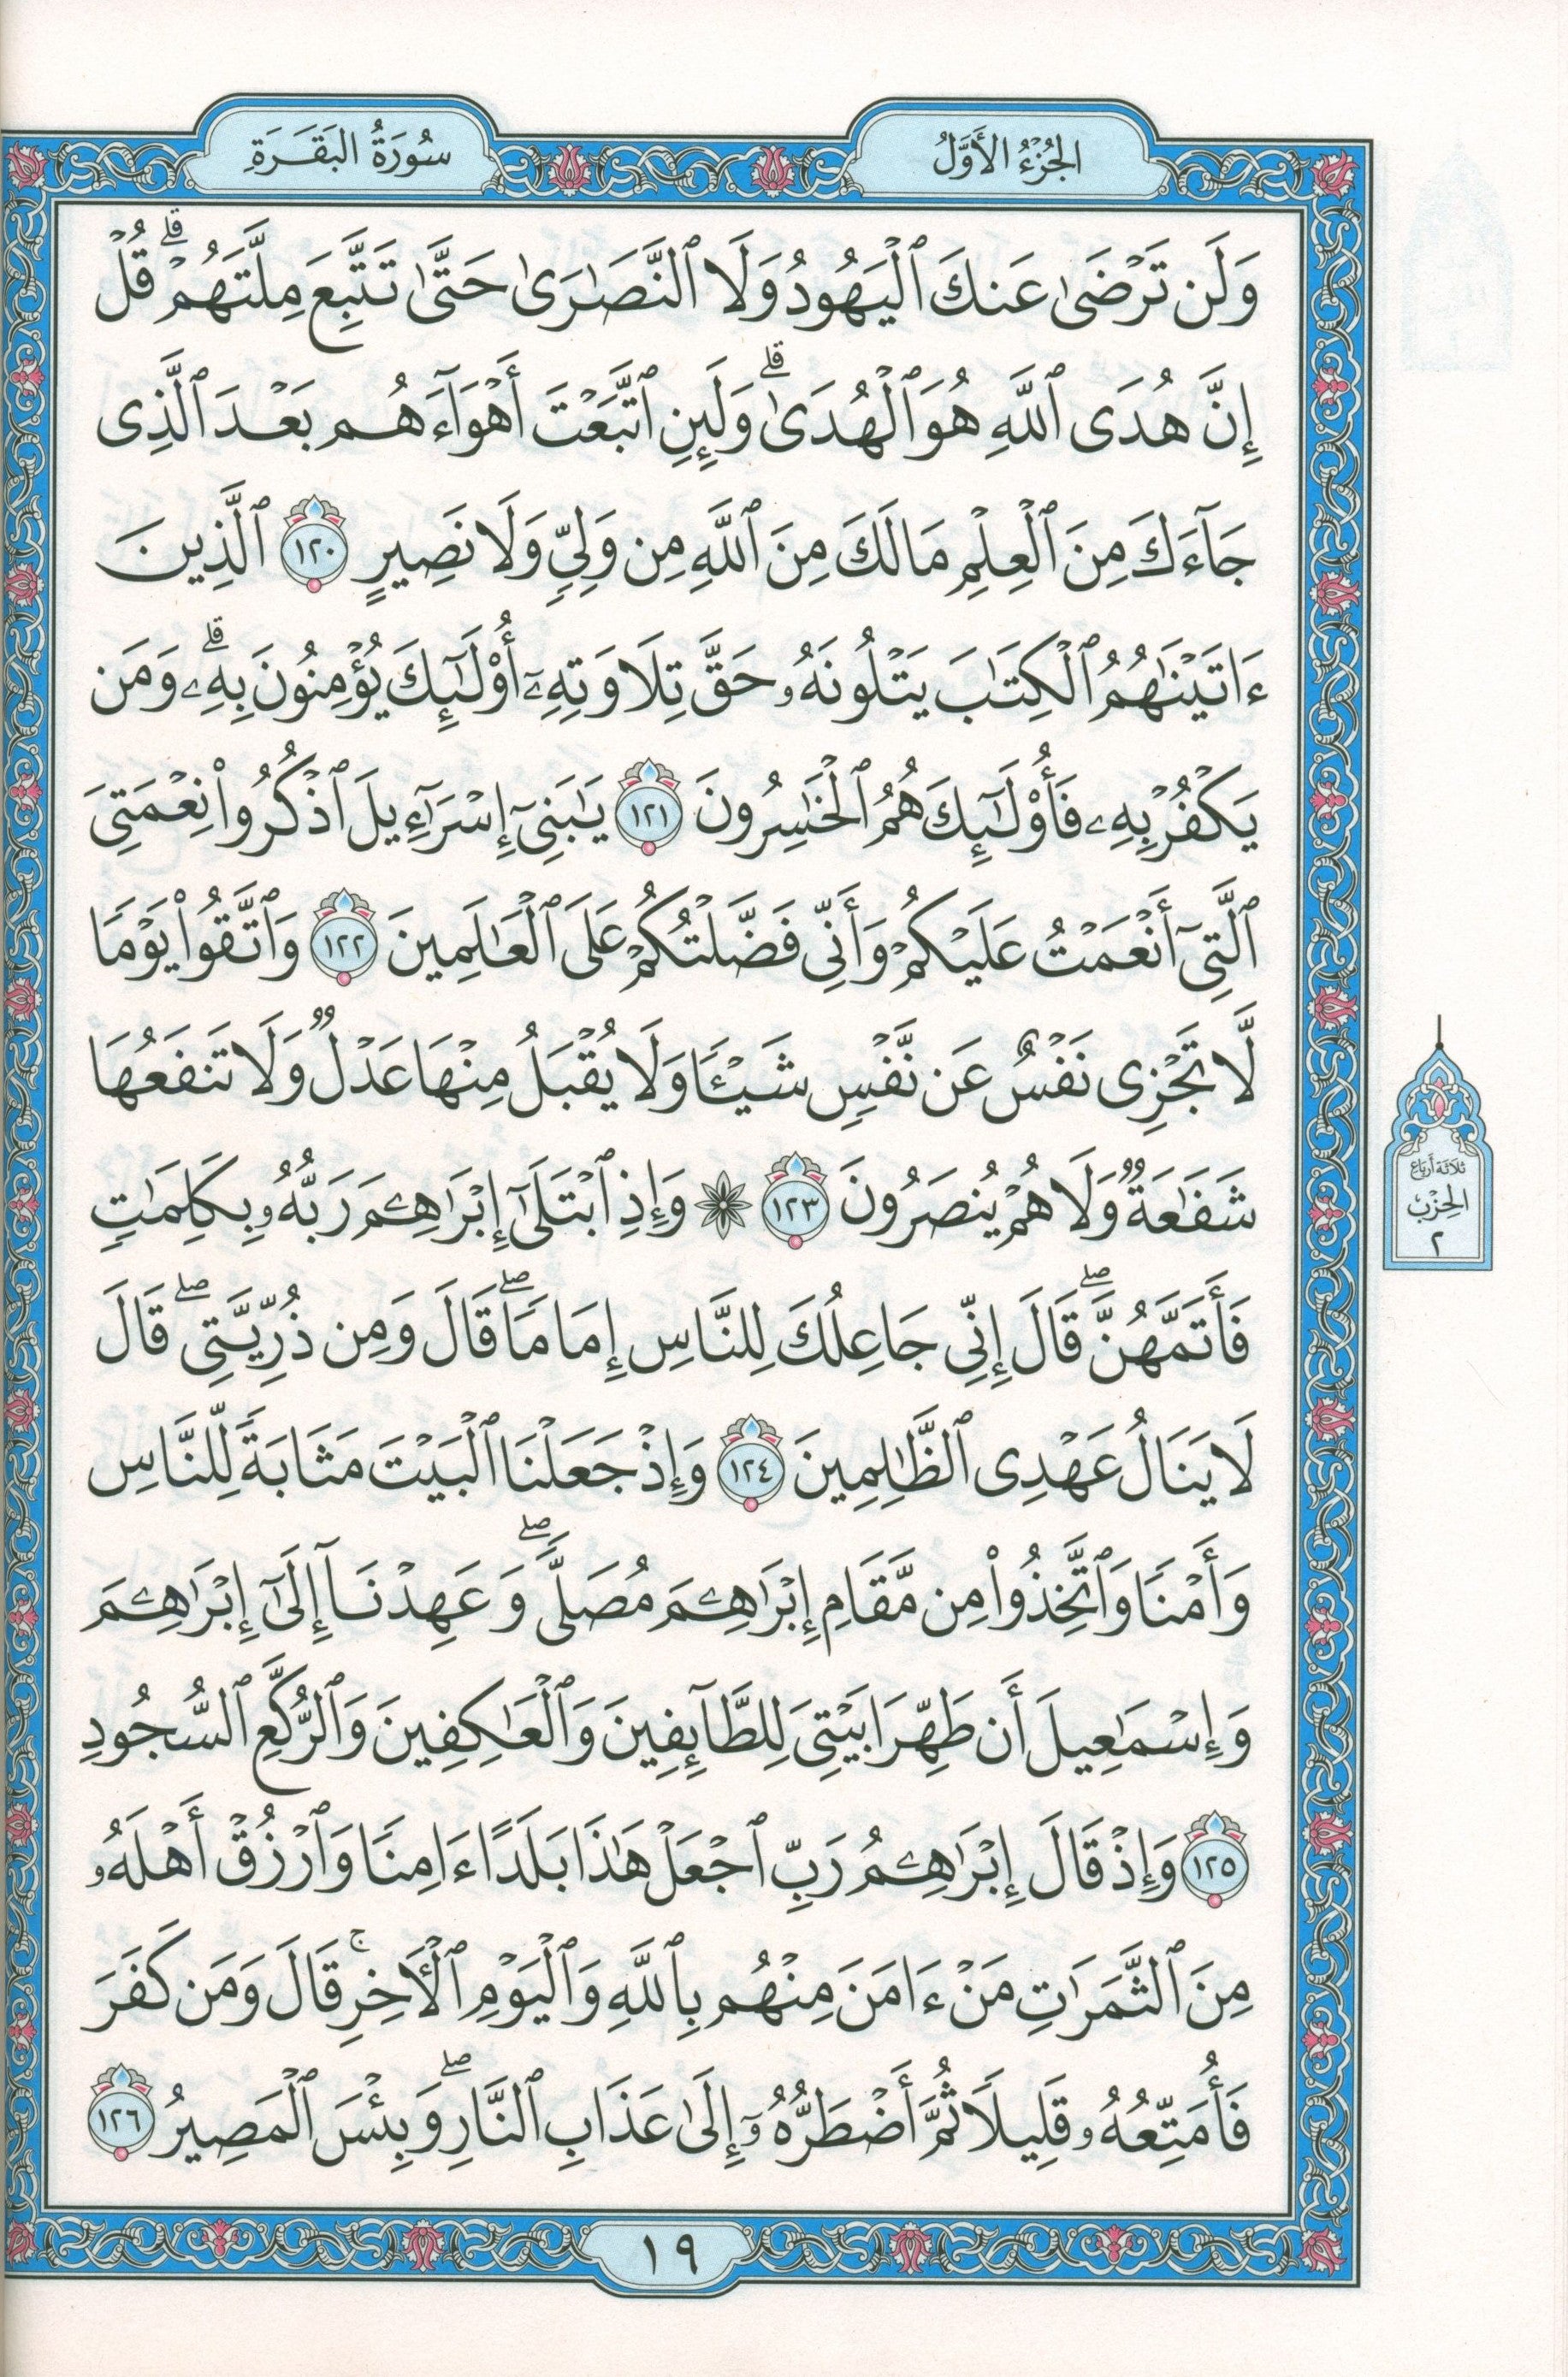 الجُزْءُ الأَوَّلُ
سُورَةُ البَقَرَةِ
وَلَن تَرْضَىٰ عَنكَ ٱلْيَهُودُ وَلَا ٱلنَّصَٰرَىٰ حَتَّىٰ تَتَّبِعَ مِلَّتَهُمْ ۗ قُلْ
إِنَّ هُدَى ٱللَّهِ هُوَ ٱلْهُدَىٰ ۗ وَلَئِنِ ٱتَّبَعْتَ أَهْوَآءَهُم بَعْدَ ٱلَّذِى
جَآءَكَ مِنَ ٱلْعِلْمِ مَا لَكَ مِنَ ٱللَّهِ مِن وَلِىٍّ وَلَا نَصِيرٍ ١٢٠ ٱلَّذِينَ
ءَاتَيْنَٰهُمُ ٱلْكِتَٰبَ يَتْلُونَهُۥ حَقَّ تِلَاوَتِهِۦٓ أُو۟لَٰٓئِكَ يُؤْمِنُونَ بِهِۦ ۗ وَمَن
يَكْفُرْ بِهِۦ فَأُو۟لَٰٓئِكَ هُمُ ٱلْخَٰسِرُونَ ١٢١ يَٰبَنِىٓ إِسْرَٰٓءِيلَ ٱذْكُرُوا۟ نِعْمَتِىَ
ٱلَّتِىٓ أَنْعَمْتُ عَلَيْكُمْ وَأَنِّى فَضَّلْتُكُمْ عَلَى ٱلْعَٰلَمِينَ ١٢٢ وَٱتَّقُوا۟ يَوْمًا
لَّا تَجْزِى نَفْسٌ عَن نَّفْسٍ شَيْـًٔا وَلَا يُقْبَلُ مِنْهَا عَدْلٌ وَلَا تَنفَعُهَا
شَفَٰعَةٌ وَلَا هُمْ يُنصَرُونَ ١٢٣ ۞ وَإِذِ ٱبْتَلَىٰٓ إِبْرَٰهِـۧمَ رَبُّهُۥ بِكَلِمَٰتٍ
فَأَتَمَّهُنَّ ۖ قَالَ إِنِّى جَاعِلُكَ لِلنَّاسِ إِمَامًا ۖ قَالَ وَمِن ذُرِّيَّتِى ۖ قَالَ
لَا يَنَالُ عَهْدِى ٱلظَّٰلِمِينَ ١٢٤ وَإِذْ جَعَلْنَا ٱلْبَيْتَ مَثَابَةً لِّلنَّاسِ
وَأَمْنًا وَٱتَّخِذُوا۟ مِن مَّقَامِ إِبْرَٰهِـۧمَ مُصَلًّى ۖ وَعَهِدْنَآ إِلَىٰٓ إِبْرَٰهِـۧمَ
وَإِسْمَٰعِيلَ أَن طَهِّرَا بَيْتِىَ لِلطَّآئِفِينَ وَٱلْعَٰكِفِينَ وَٱلرُّكَّعِ ٱلسُّجُودِ
١٢٥ وَإِذْ قَالَ إِبْرَٰهِـۧمُ رَبِّ ٱجْعَلْ هَٰذَا بَلَدًا ءَامِنًا وَٱرْزُقْ أَهْلَهُۥ
مِنَ ٱلثَّمَرَٰتِ مَنْ ءَامَنَ مِنْهُم بِٱللَّهِ وَٱلْيَوْمِ ٱلْـَٔاخِرِ ۚ قَالَ وَمَن كَفَرَ
فَأُمَتِّعُهُۥ قَلِيلًا ثُمَّ أَضْطَرُّهُۥٓ إِلَىٰ عَذَابِ ٱلنَّارِ ۖ وَبِئْسَ ٱلْمَصِيرُ ١٢٦
ثلاثة أرباع
الحِزْب
٢
١٩